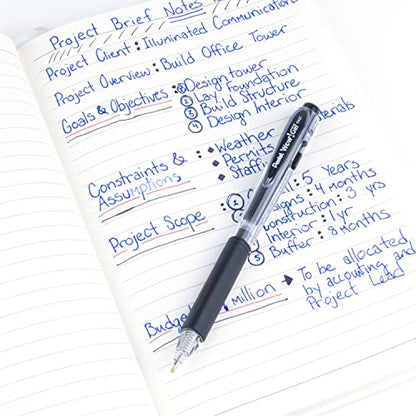 Project Brief Notes
Project Client: Illuminated Communications
Project Overview: Build Office Tower
Goals & Objectives: ① Design tower
② Lay foundation
③ Build Structure
④ Design Interior
Materials
Constraints & Assumptions:
◆ Weather
◆ Permits
◆ Staffi
Project Scope: ①
: 5 Years
signs: 4 months
Construction: 3 yrs
Interior: 1yr
⑤ Buffer: 8 months
Budget
million → To be allocated
by accounting and
Project Lead
Pentel Wow! Gel